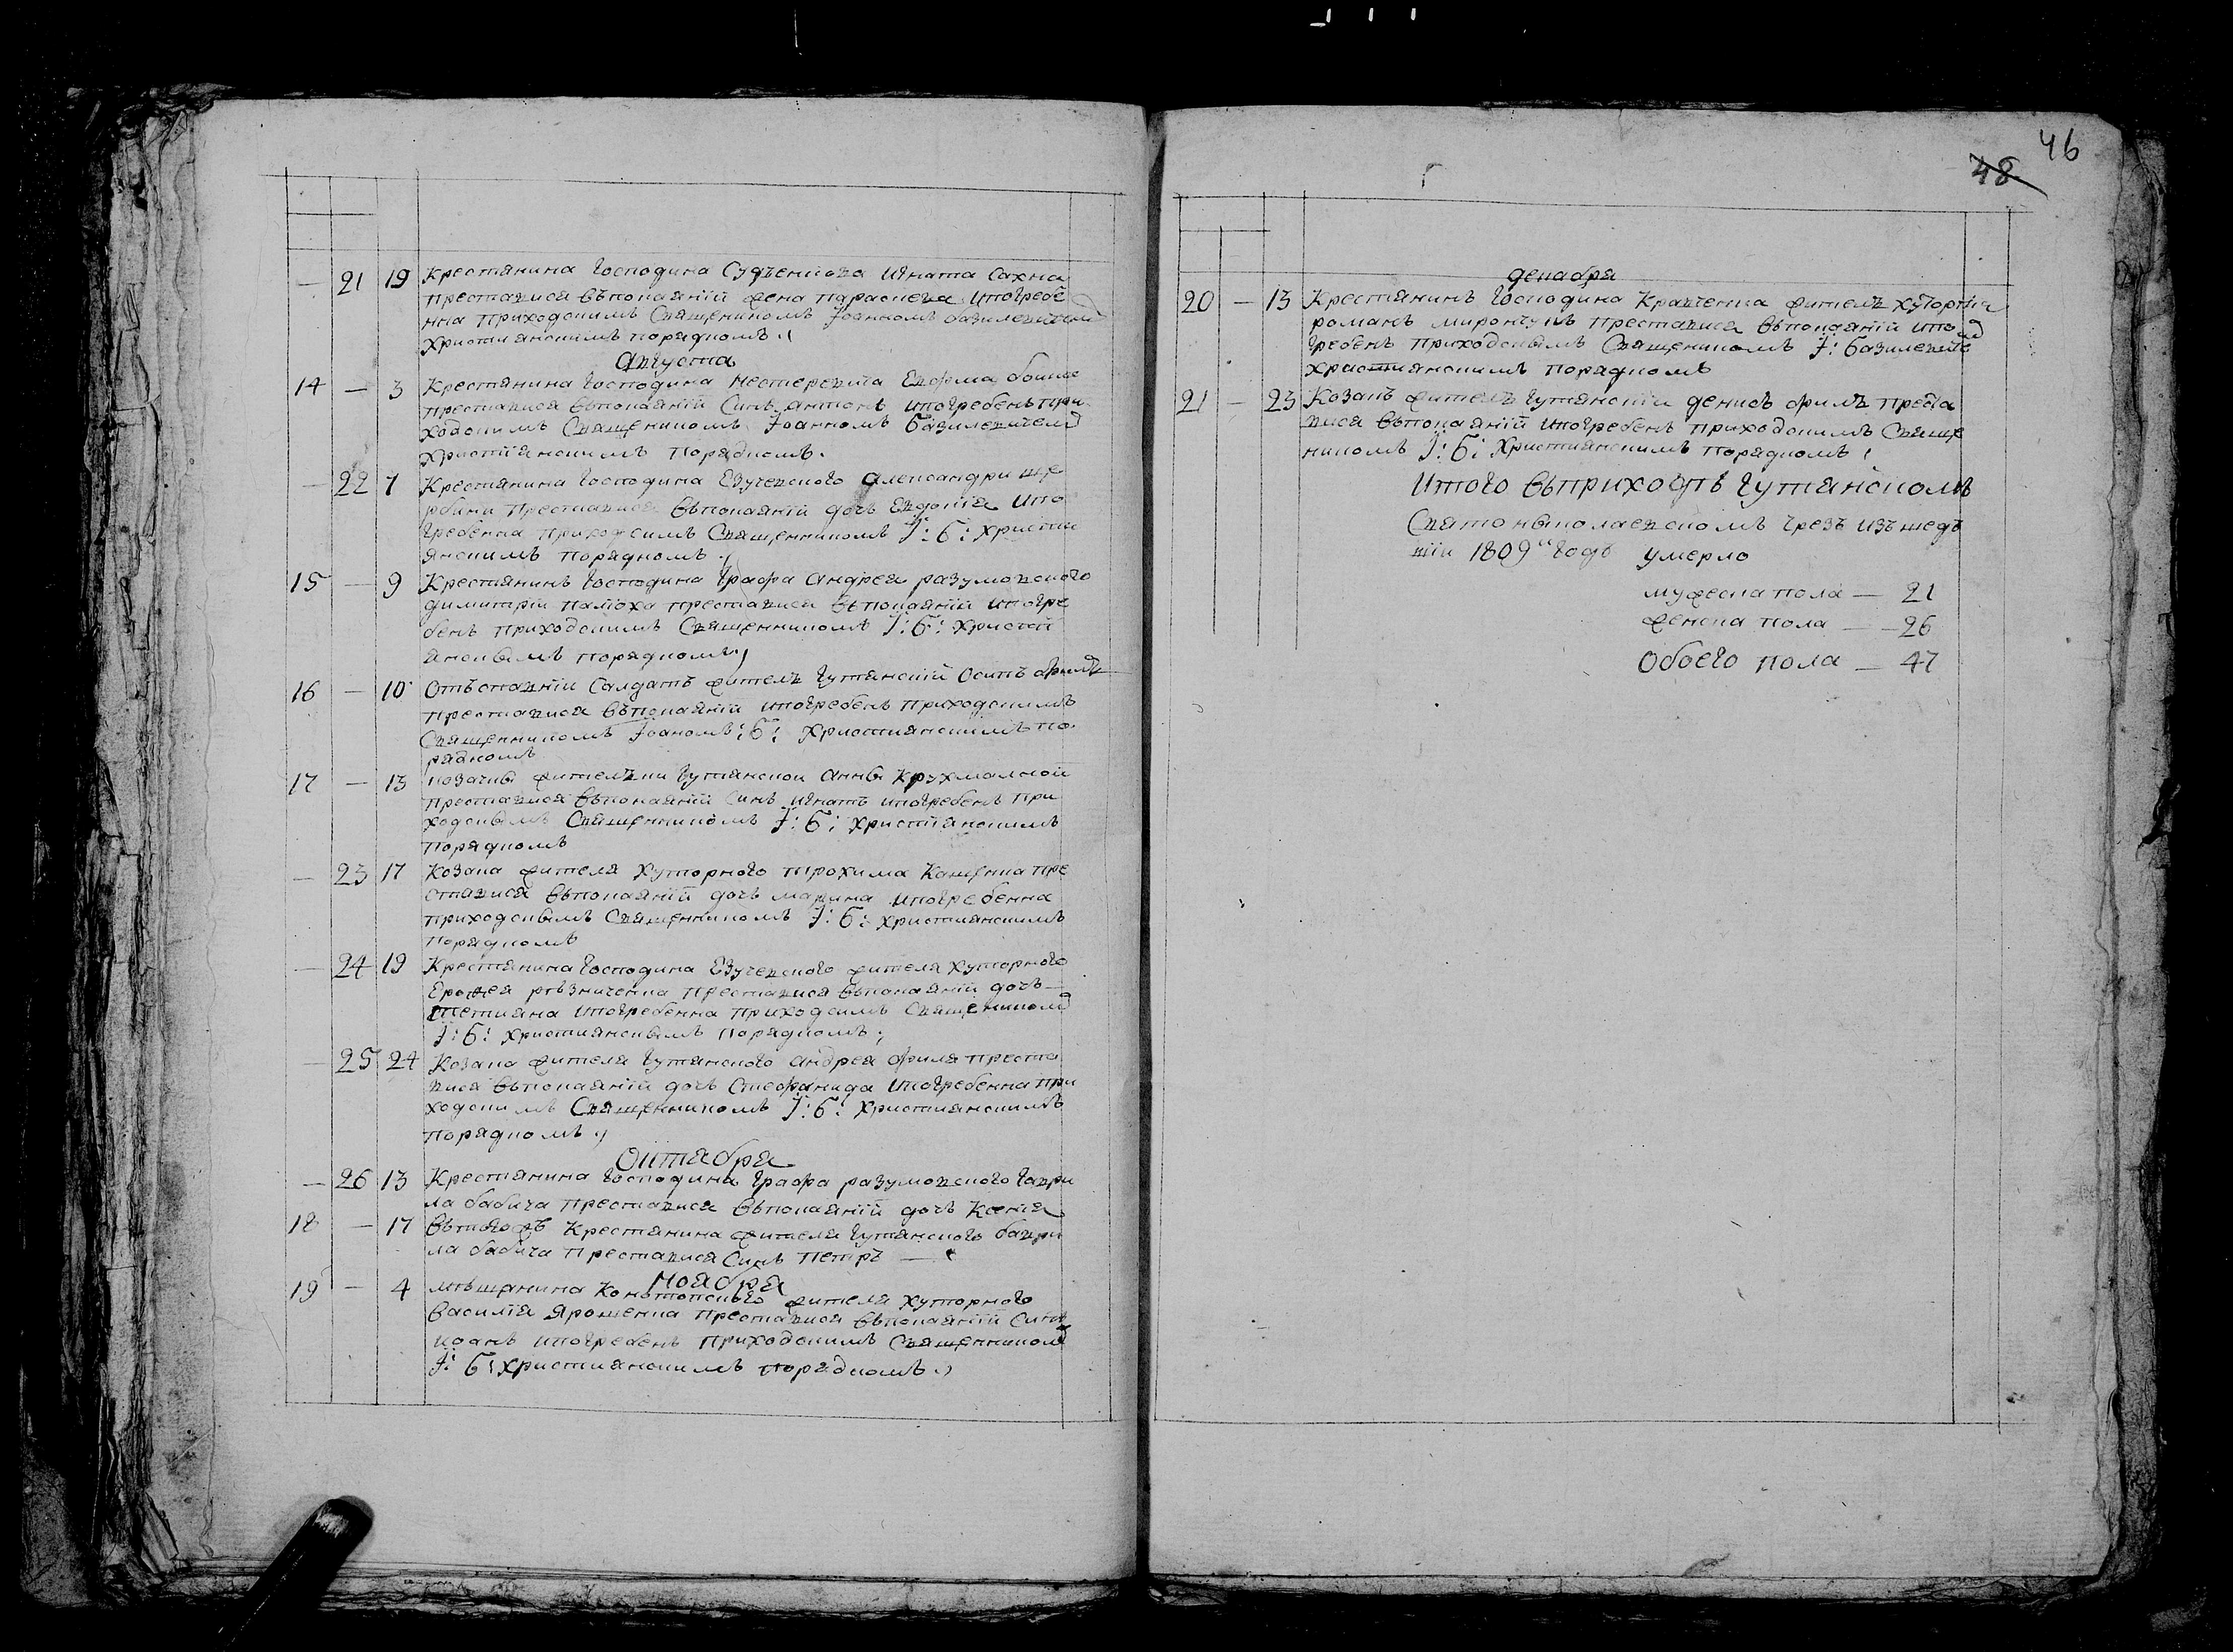 46
48
— 21 19 Крестянина Господина Судъенкова Игната Сахна
преставися въпокаянїй жена Параскева ипогребе
нна приходскимъ Священикомъ Іоанномъ базилевичемъ
Христианскимъ порядкомъ.
Августа
14 — 3 Крестянина Господина Нестеревича Евфима
преставися въпокаянїй Синъ антонъ ипогребенъ при
ходскимъ Священикомъ Іоанномъ Базилевичемъ
Христїянскимъ порядкомъ.
— 22 7 Крестянина Господина Езучевского Александри
преставися въпокаянїй дочь Евдокїя ипо
гребенна приходскимъ Священникомъ І: Б: христи
янскимъ порядкомъ
15 — 9 Крестянинъ Господина Графа андрея разумовского
димитрїи палїоха преставися въпокаянїй ипогре
бенъ приходскимъ Священникомъ І: Б: Христи
янскымъ порядкомъ
16 — 10 Отъставнїи Салдатъ жителъ Гутянскїй Осипъ филъ
преставися въпокаянїй ипогребенъ приходскимъ
Священникомъ Іоаномъ: Б: Христианскимъ по
рядкомъ
17 — 13 козачки жителъки Гутянскои анны Крухмалной
преставися въпокаянїй Синъ игнатъ ипогребенъ при
ходскымъ Священникомъ І: Б: Христїянскимъ
порядкомъ
— 23 17 Козака жителя Хуторного трохима Кащенка пре
ставися въпокаянїй дочь марина ипогребенна
приходскымъ Священникомъ І: Б: христианскимъ
порядкомъ
— 24 19 Крестянина Господина Езучевского жителя Хуторного
Ерофея рѣзниченка преставися въпокаянїй дочь
тетияна ипогребенна приходскимъ Священикомъ
І: Б: христианскымъ порядкомъ;
— 25 24 Козака жителя Гутянского андрея филя преста
вися въпокаянїй дочь Стефанида ипогребенна при
ходскимъ Священникомъ І: Б: христианскимъ
порядкомъ
Октября
— 26 13 Крестянина Господина Графа разумовского Гаври
ла бабича преставися въпокаянїй дочь Ксенїя
18 — 17 Крестянина жителя Гутянского
ла бабича преставися Синъ петръ —
Ноября
19 — 4 мѣщанина Конотопского жителя хуторного
Василїя Ярошенка преставися въпокаянїй Синъ
иоанъ ипогребенъ приходскимъ Священникомъ
І: Б: христианскимъ порядкомъ
декабря
20 — 13 Крестянинъ Господина Кравченка жителъ хуторный
романъ мирончукъ преставися въпокаянїй ипо
гребенъ приходскымъ Священикомъ І: базилевиче
христианскимъ порядкомъ
21 — 23 Козакъ жителъ Гутянскїи денисъ филъ преста
вися въпокаянїй ипогребенъ приходскимъ Свяще
никомъ І: Б: Христианскимъ порядкомъ
Итого въприходѣ Гутянскомъ
Святониколаевскомъ чрезъ изъшед
шїи 1809й годъ умерло
мужеска пола — 21
женска пола — 26
Обоего пола — 47